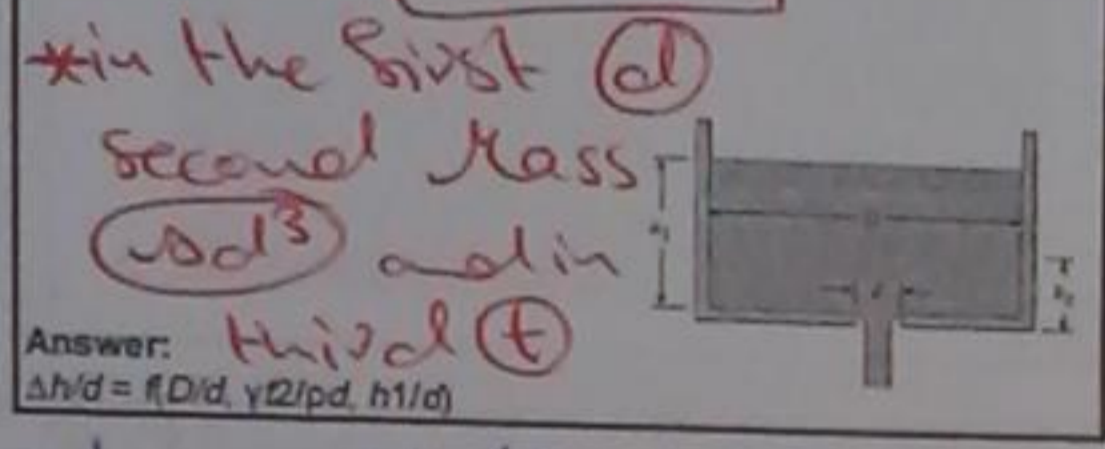 *in the first d
second Mass
ρd³ and in
third t
Answer:
Δh/d = f(D/d, γt2/ρd, h1/d)
D
d
h₁
h₂